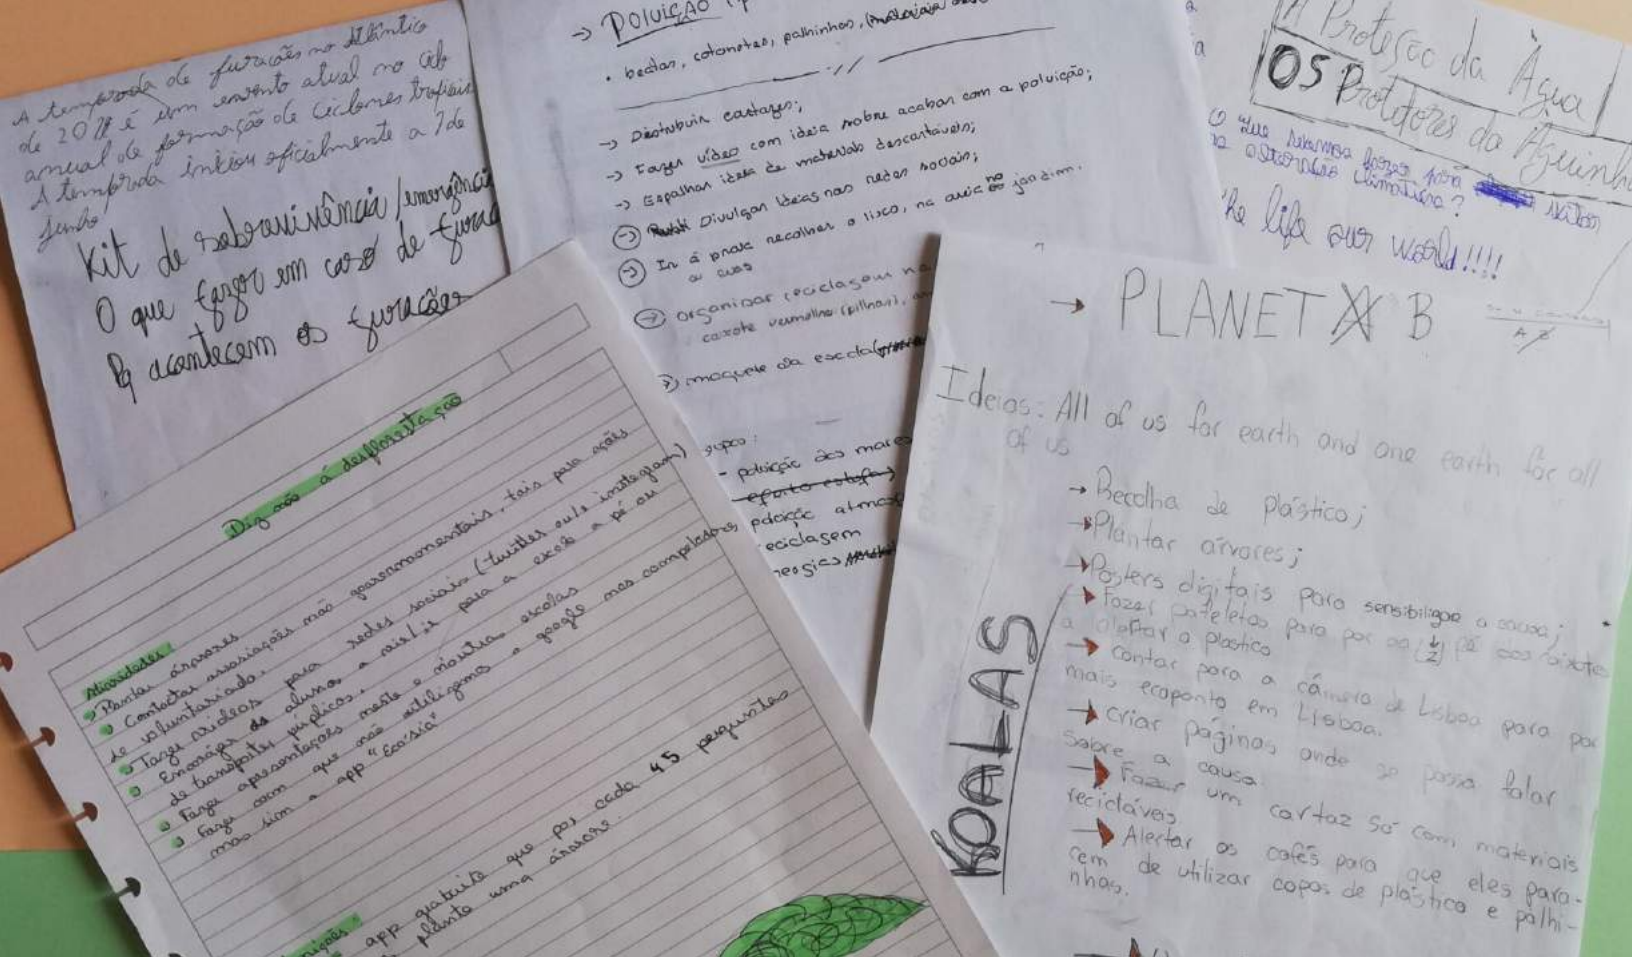 A temporada de furacões no Atlântico
de 20 é um evento atual no cíclo
anual de formação de ciclones tropicais
A temporada iniciou oficialmente a 1 de
Junho
Kit de sobrevivência / emergência
O que fazer em caso de furac
Pq acontecem os furacões
→ POLUIÇÃO
• beatas, cotonetes, palhinhas, (materiais
→ Distribuir cartazes;
→ Fazer vídeo com ideia sobre acabar com a poluição;
→ Espalhar ideia de materiais descartáveis;
→ Divulgar ideias nas redes sociais;
→ Ir á praia recolher o lixo, na areia no jardim.
ou ruas
→ organizar reciclagem na
caixote vermelho (pilhas),
→ maquete da escola
grupo:
- poluição dos mares
- efeito estufa
poluição atmos
eciclagem
nergias
A Proteção da Água
OS Protetores da Aguinha
O que podemos fazer para
a alteração climática?
the life our world!!!!
→ PLANET A B
Ideias: All of us for earth and one earth for all
of us
→ Recolha de plástico;
→ Plantar árvores;
→ Posters digitais para sensibilizar a causa;
→ Fazer para por ao pé dos
a alertar o plastico
→ contar para a câmera de Lisboa para por
mais ecoponto em Lisboa.
→ criar páginas onde se possa falar
sobre a causa.
→ Fazer um cartaz só com materiais
recicláveis
→ Alertar os cafés para que eles para-
cem de utilizar copos de plástico e palhi-
nhas.
KOALAS
Diz não á desflorestação
Atividades:
Plantar árvores
Contactar associações não governamentais, tais para ações
de voluntariado.
Fazer videos para redes sociais (twitter ou instagram)
Encorajar os alunos a vir para a escola a pé ou
de transportes públicos.
Fazer apresentações nesta e noutras escolas
Fazer com que não utilizemos o google nos computadores,
mas sim a app "Ecosia"
app gratuita que por cada 45 perguntas
planta uma árvore.